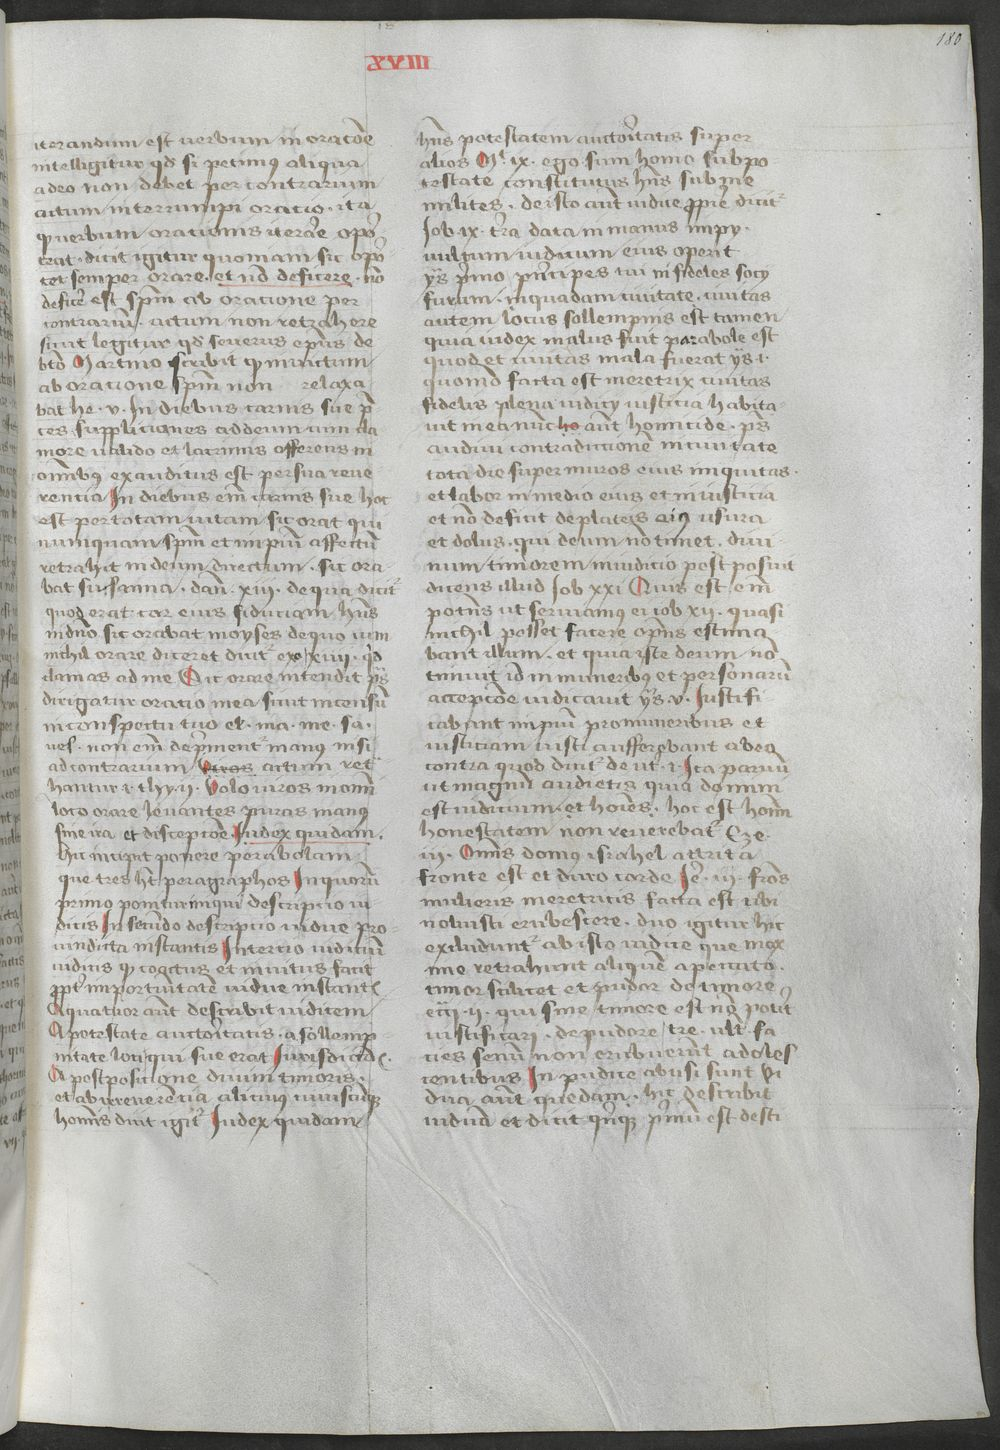 180
XVIII
iterandum est uerbum in oracōe
intelligitur qd si petimus aliqua
adeo non debet per contrarium
actum interrumpi oratio. ita
ꝙ uerbum orationis iterāre opor
terat. dicit igitur quoniam sic opor
tet semper orare. et nō deficere. nō
deficere est spm̄ ab oratione per
contrariū actum non retrahere
sicut legitur qd seuerus ep̄us de
bt̄o Martino scribit ꝙ inuictum
ab oratione spm̄ non relaxa
bat he. v. In diebus carnis sue p̄
ces supplicationes ad deum cum cla
more ualido et lacrimis offerens in
omībus exauditus est per sua reue
rentia In diebus em̄ carnis sue hoc
est per totam uitam sic orat qui
numquam spm̄ et impiū affectū
retrahit in deum directum. sic ora
bat susanna. dan̄. xiii. de qua dicit
quod erat cor eius fiduciam hn̄s
in dn̄o sic orabat moyses de quo cum
nichil orare diceret dicit exo xiiii. qd
clamas ad me Sic orare intendit ps̄
dirigatur oratio mea sicut incensū
in conspectu tuo el. ma. me. sa.
ues. non em̄ deprimentur manus nisi
ad contrarium actum ret
hantur i. thy. ii. Volo uiros in omī
loco orare leuantes puras manus
sine ira et disceptōe. Iudex quidam.
hic incipit ponere parabolam
que tres ht̄ paragraphos In quorū
primo ponitur iniqui descriptio iu
dicis In secūdo descriptio uidue pro
uindicta instantis In tertio iudiciū
iudicis ꝙ coactus et inuitus facit
ꝓpt̄ importunitatē uidue instantis
A quatuor aūt describit iudicem
A potestate auctōritatis. a sollemp
nitate loci qui sue erat Iurisdictōis.
A postpositione diuini timoris.
et ab irreuerētia alicuius cuiuscūqꝫ
hominis dicit igit̄ Iudex quidam
hn̄s potestatem auctōritatis super
alios Mt ix. ego sum homo sub po
testate constitutus hn̄s sub me
milites. de isto aūt iudice ꝓprie dicit̄
Iob ix. tr̄a data in manus impy.
uultum iudicum eius operit
ys̄ primo principes tui infideles socij
furum. in quadam ciuitate. ciuitas
autem locus sollempnis est tamen
quia iudex malus fuit parabole est
quod et ciuitas mala fuerat ys̄ i.
quomō facta est meretrix ciuitas
fidelis plena iudicij iusticia habita
uit in ea nūc aūt homicide. ps̄
audiui contradictionem in ciuitate
tota die super muros eius iniquitas.
et labor in medio eius et iniusticia
et nō deficit de plateis eius usura
et dolus. qui deum nō timet. diui
num timorem in iudicio postposuit
dicens illud Iob xxi Quis est em̄
potens ut seruiamus ei iob xii. quasi
nichil posset facere opn̄s estima
bant illum. et quia iste deum nō
timuit id in muneribus et personarū
acceptōe iudicauit ys̄ v. Iustifi
cabant impiū pro muneribus et
iusticiam iusti aufferebant ab eo
contra quod dicit̄ deut. i. Ita paruū
ut magnū audietis quia domini
est iudicium. et hoīes. hoc est homī
honestatem non reuerebat̄ Eze.
iii. Omnis domus israhel attrita
fronte est et duro corde Ie. iii. frōs
mulieris meretricis facta est tibi
noluisti erubescere. duo igitur hic
excluduntur ab isto iudice que max
ime retrahunt aliquē a peccato.
timor scilicet et pudor de timore
ecci. ii. qui sine timore est nō potit
iustificari. de pudore tre. ult̄. fa
cies senū non erubuerūt adoles
centibus In pudice abusi sunt Vi
dua aūt quedam. hic describit
uiduā et dicit qn̄qꝫ primū est desti